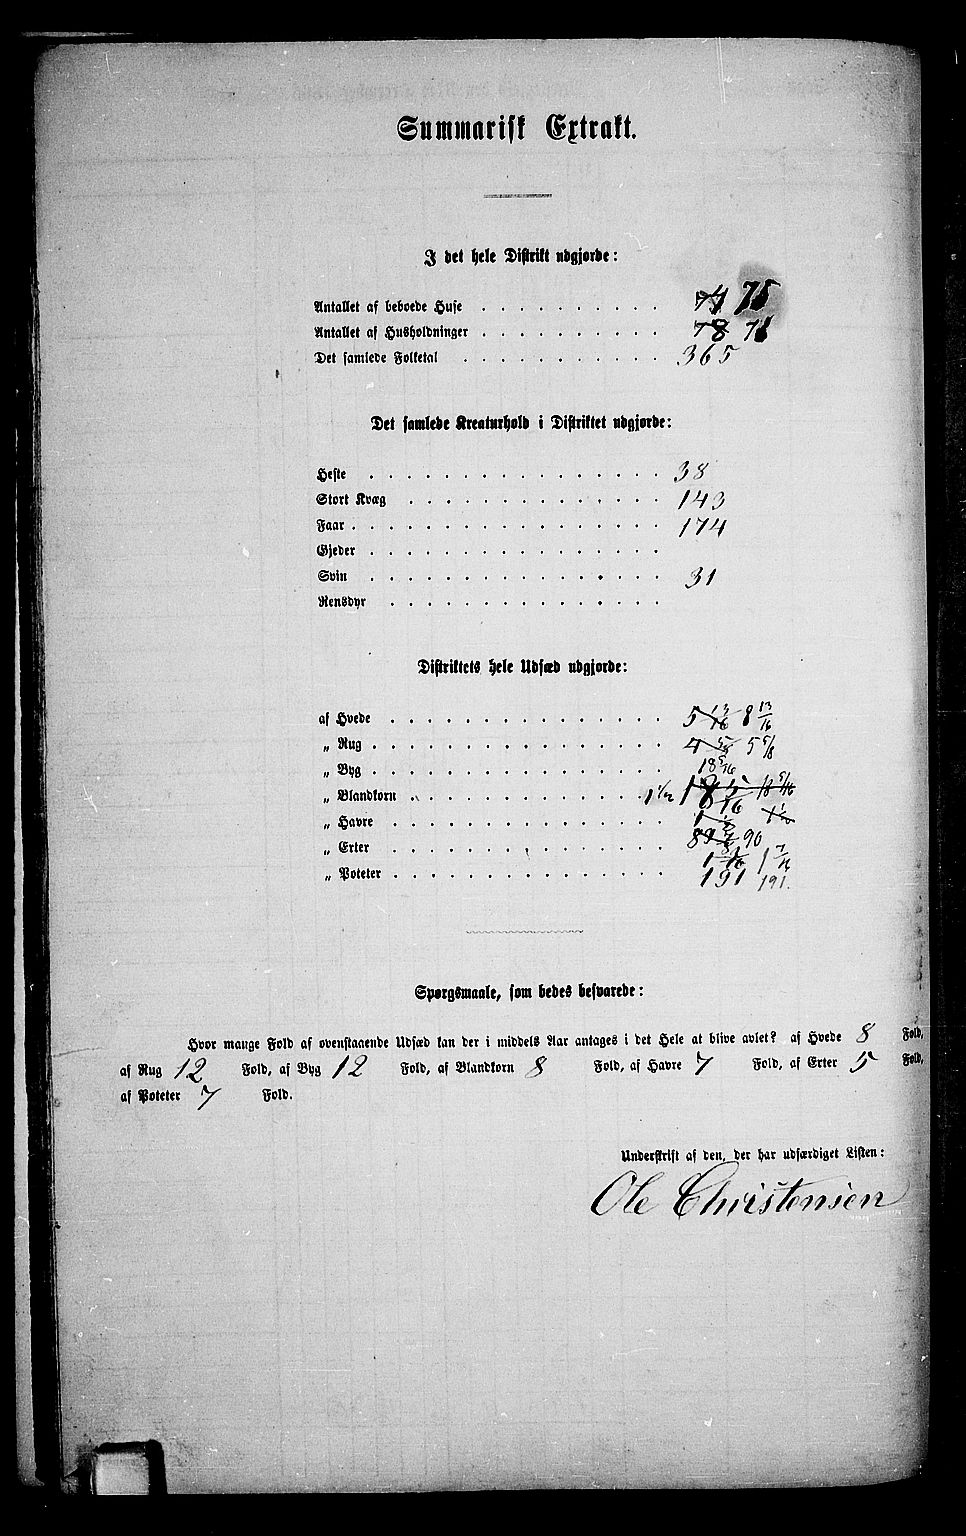 Summarisk Extrakt.
I det hele Distrikt udgjorde:
Antallet af beboede Huse . . . . . . . . . . 75
Antallet af Husholdninger . . . . . . . . . . 78
Det samlede Folketal . . . . . . . . . . . 365
Det samlede Kreaturhold i Distriktet udgjorde:
Heste . . . . . . . . . . . . . . . . 38
Stort Kvæg . . . . . . . . . . . . . . 143
Faar . . . . . . . . . . . . . . . . . 174
Gjeder . . . . . . . . . . . . . . . .
Svin . . . . . . . . . . . . . . . . 31
Rensdyr . . . . . . . . . . . . . . .
Distriktets hele Udsæd udgjorde:
af Hvede . . . . . . . . . . . . . . . 5 13/16 8 13/16
„ Rug . . . . . . . . . . . . . . . . 4 5/8 5 5/8
„ Byg . . . . . . . . . . . . . . . . 18 5/16
„ Blandkorn . . . . . . . . . . . . . 1 1/2 18 5/16 18 5/16
„ Havre . . . . . . . . . . . . . . . 1 1/2 1 1/2
„ Erter . . . . . . . . . . . . . . . 90
„ Poteter . . . . . . . . . . . . . . 1 7/16 1 7/16
191 191.
Spørgsmaale, som bedes besvarede:
Hvor mange Fold af ovenstaaende Udsæd kan der i middels Aar antages i det Hele at blive avlet? af Hvede 8 Fold,
af Rug 12 Fold, af Byg 12 Fold, af Blandkorn 8 Fold, af Havre 7 Fold, af Erter 5 Fold,
af Poteter 7 Fold.
Underskrift af den, der har udfærdiget Listen:
Ole Christensen